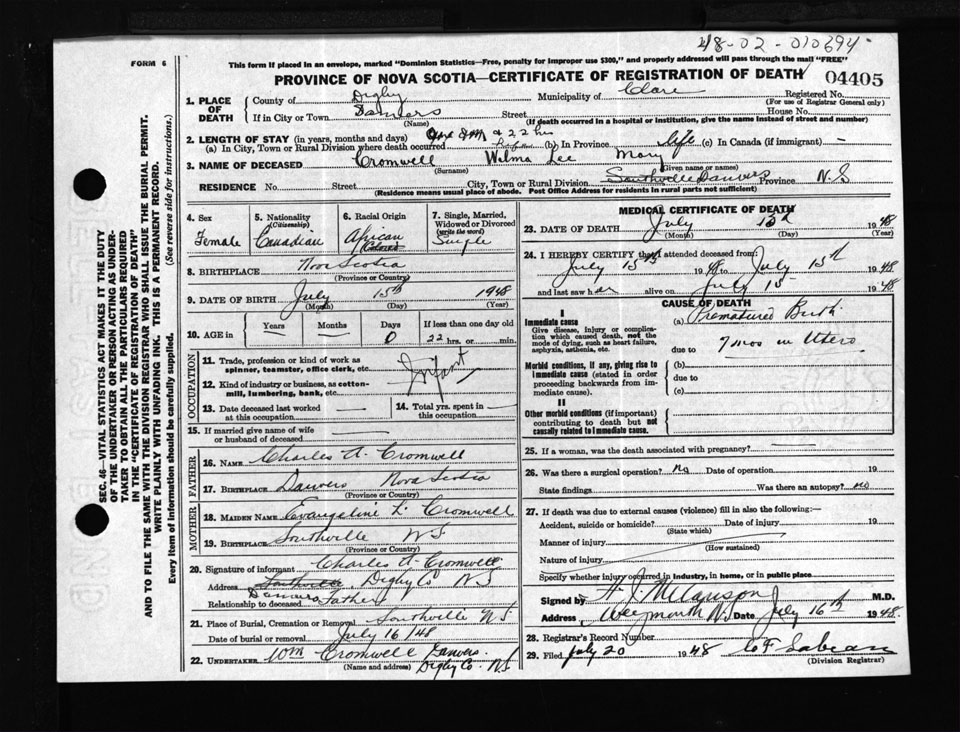 48-02-010694
FORM 6
This form if placed in an envelope, marked "Dominion Statistics—Free, penalty for improper use $300," and properly addressed will pass through the mail "FREE"
PROVINCE OF NOVA SCOTIA—CERTIFICATE OF REGISTRATION OF DEATH
04405
1. PLACE OF DEATH
County of Digby Municipality of Clare Registered No.
(For use of Registrar General only)
If in City or Town Danvers Street House No.
(Name) (If death occurred in a hospital or institution, give the name instead of street and number)
2. LENGTH OF STAY (in years, months and days)
(a) In City, Town or Rural Division where death occurred 22 hrs (b) In Province life (c) In Canada (if immigrant) —
3. NAME OF DECEASED Cromwell Wilma Lee Mary
(Surname) (Given name or names)
RESIDENCE No. Street City, Town or Rural Division Southville Danvers Province N.S
(Residence means usual place of abode. Post Office Address for residents in rural parts not sufficient)
4. Sex
Female
5. Nationality
(Citizenship)
Canadian
6. Racial Origin
African
Colored
7. Single, Married, Widowed or Divorced
(write the word)
Single
8. BIRTHPLACE Nova Scotia
(Province or Country)
9. DATE OF BIRTH July 15th 1948
(Month) (Day) (Year)
10. AGE in Years Months Days If less than one day old
— — 0 22 hrs. or min.
OCCUPATION
11. Trade, profession or kind of work as spinner, teamster, office clerk, etc. Infant
12. Kind of industry or business, as cotton-mill, lumbering, bank, etc.
13. Date deceased last worked at this occupation —
14. Total yrs. spent in this occupation. —
15. If married give name of wife or husband of deceased —
FATHER
16. NAME Charles A. Cromwell
17. BIRTHPLACE Danvers Nova Scotia
(Province or Country)
MOTHER
18. MAIDEN NAME Evangeline L. Cromwell
19. BIRTHPLACE Southville N S
(Province or Country)
20. Signature of informant Charles A. Cromwell
Address Southville Digby Co N S
Danvers
Relationship to deceased Father
21. Place of Burial, Cremation or Removal Southville N S
Date of burial or removal July 16/48
22. UNDERTAKER Wm Cromwell Danvers
(Name and address) Digby Co. N.S
MEDICAL CERTIFICATE OF DEATH
23. DATE OF DEATH July 15th 1948
(Month) (Day) (Year)
24. I HEREBY CERTIFY that I attended deceased from:
July 15th 1948 to July 15th 1948
and last saw her alive on July 15 1948
CAUSE OF DEATH
I
Immediate cause
Give disease, injury or complication which caused death, not the mode of dying, such as heart failure, asphyxia, asthenia, etc.
(a) Prematured Birth
due to 7 mos in Utero
Morbid conditions, if any, giving rise to immediate cause (stated in order proceeding backwards from immediate cause).
(b)
due to
(c)
II
Other morbid conditions (if important) contributing to death but not causally related to immediate cause.
25. If a woman, was the death associated with pregnancy?
26. Was there a surgical operation? No Date of operation 19
State findings Was there an autopsy? no
27. If death was due to external causes (violence) fill in also the following:—
Accident, suicide or homicide? Date of injury 19
(State which)
Manner of injury
(How sustained)
Nature of injury
Specify whether injury occurred in industry, in home, or in public place
Signed by M.D.
Address Weymouth N.S Date July 16th 1948.
28. Registrar's Record Number
29. Filed July 20 1948
(Division Registrar)
SEC. 46—VITAL STATISTICS ACT MAKES IT THE DUTY
OF THE UNDERTAKER OR PERSON ACTING AS UNDER-
TAKER TO OBTAIN ALL THE PARTICULARS REQUIRED
IN THE "CERTIFICATE OF REGISTRATION OF DEATH"
AND TO FILE THE SAME WITH THE DIVISION REGISTRAR WHO SHALL ISSUE THE BURIAL PERMIT.
WRITE PLAINLY WITH UNFADING INK. THIS IS A PERMANENT RECORD.
Every item of information should be carefully supplied. (See reverse side for instructions.)